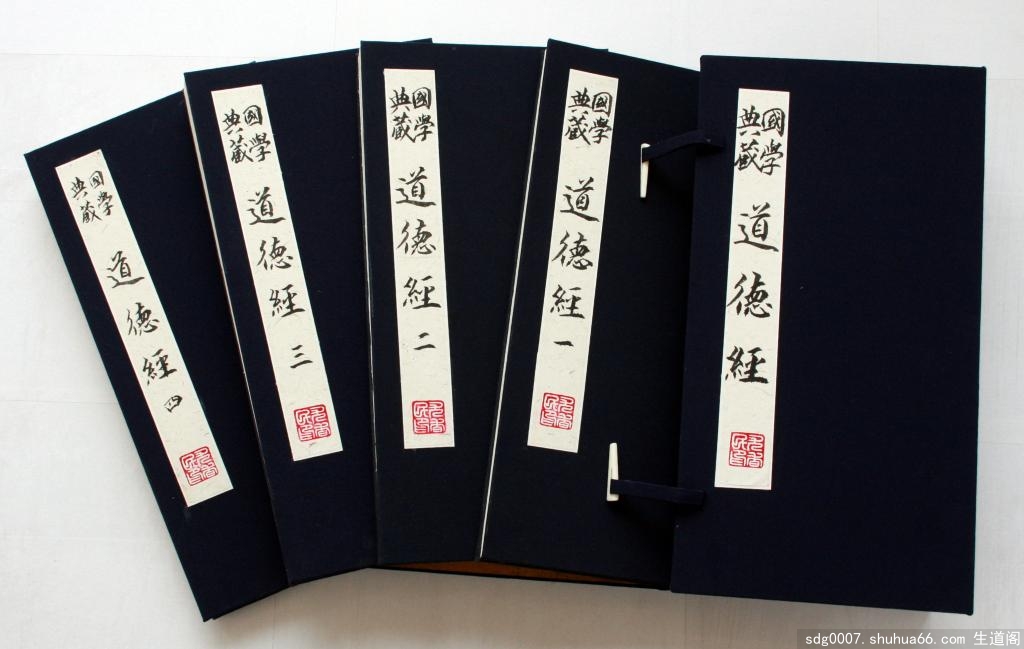 國學
典藏
道德經
國學
典藏
道德經一
國學
典藏
道德經二
國學
典藏
道德經三
國學
典藏
道德經四
sdg0007.shuhua66.com 生道阁